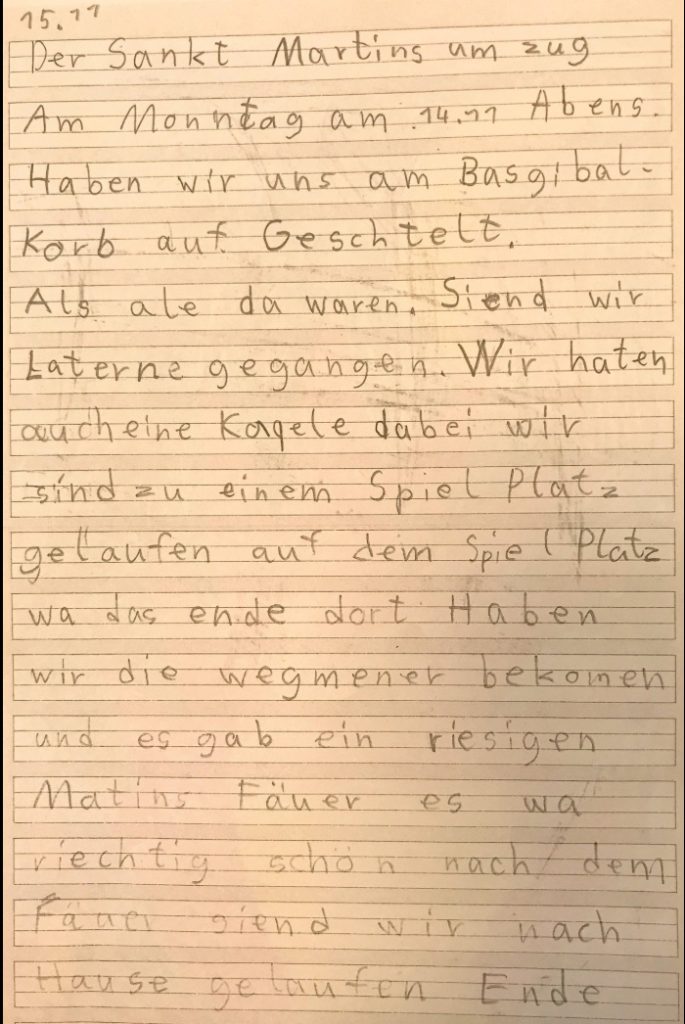 15.11
Der Sankt Martins um zug
Am Monntag am 14.11 Abens.
Haben wir uns am Basgibal-
Korb auf Geschtelt.
Als ale da waren. Siend wir
Laterne gegangen. Wir haten
aucheine Kagele dabei wir
sind zu einem Spiel Platz
gelaufen auf dem Spiel Platz
wa das ende dort Haben
wir die wegmener bekomen
und es gab ein riesigen
Matins Fäuer es wa
riechtig schön nach dem
Fäuer siend wir nach
Hause gelaufen Ende